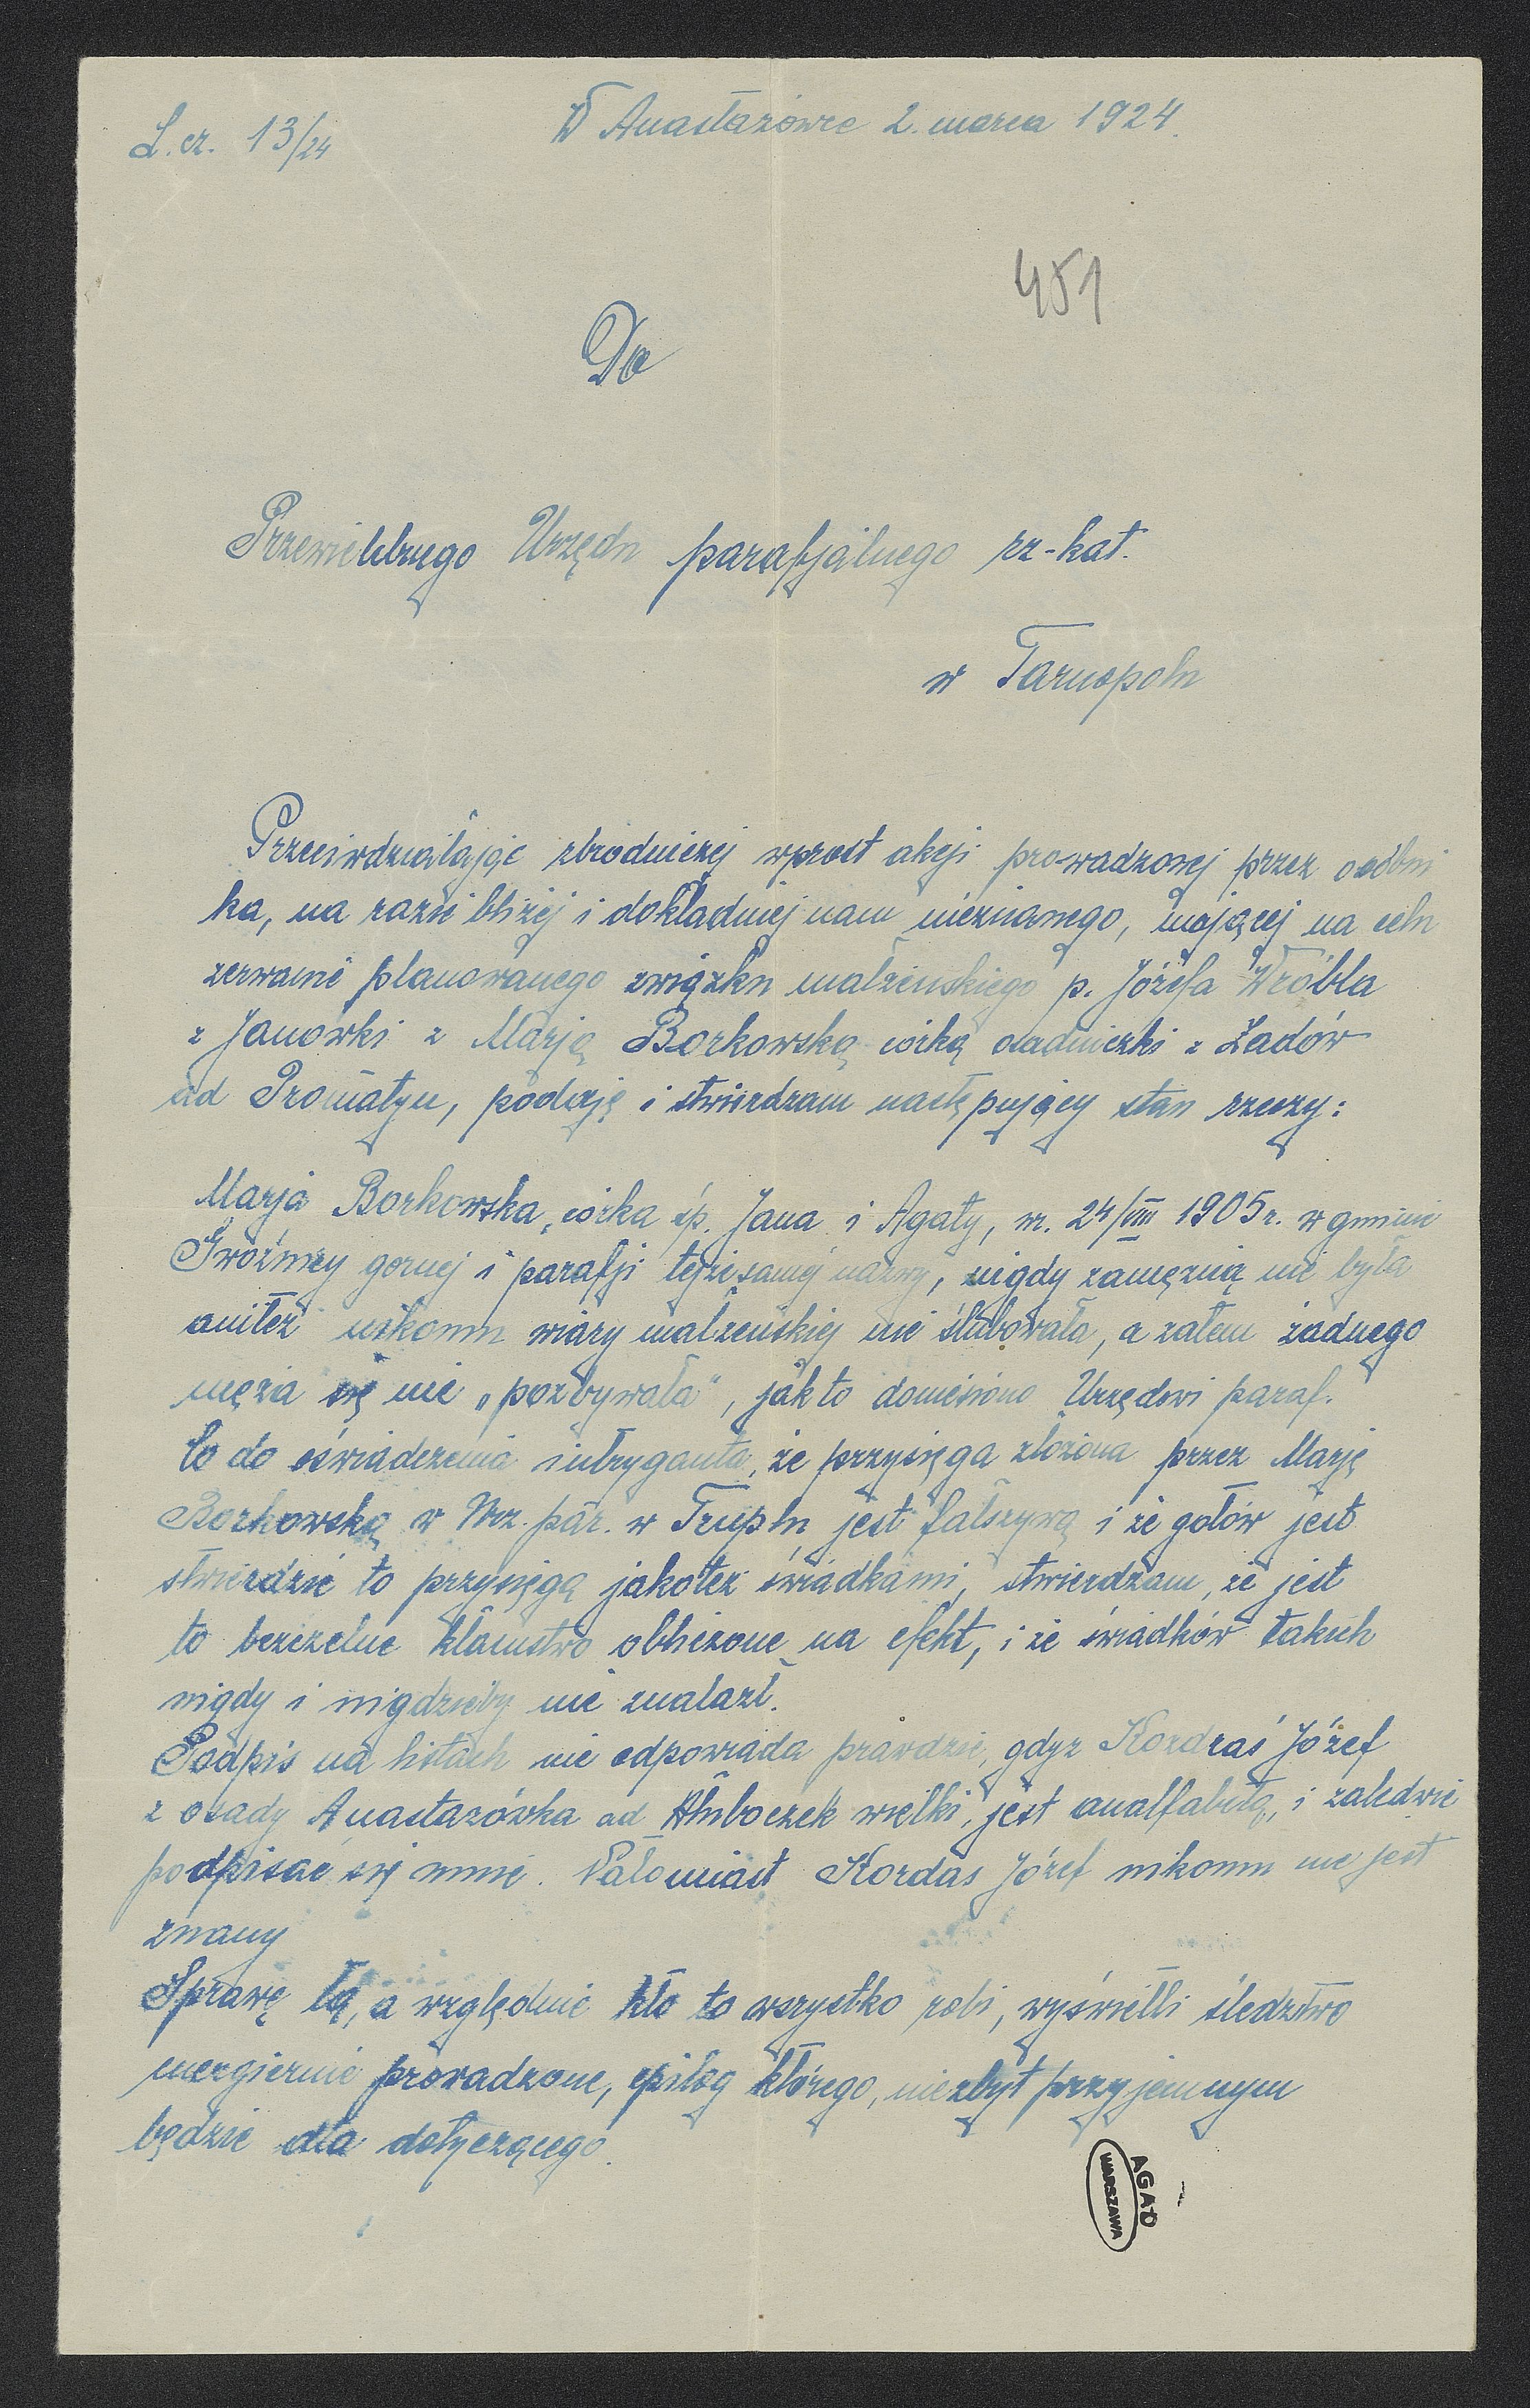 L. cz. 13/24
W Anastazówce 2. marca 1924.
451
Do
Przewielebnego Urzędu parafjalnego rz-kat.
w Tarnopolu
Przeciwdziałając zbrodniczej wprost akcji prowadzonej przez osobni
ka, na razie bliżej i dokładniej nam nieznanego, mającej na celu
zerwanie planowanego związku małżeńskiego p. Józefa Wróbla
z Janówki z Marją Borkowską córką osadniczki z Ładów
ad Proniatyn, podaję i stwierdzam następujący stan rzeczy:
Marja Borkowska, córka śp. Jana i Agaty, ur. 24/VIII 1905 r. w gminie
Gwoźnicy gornej i parafji tejże samej nazwy, nigdy zamężną nie była
aniteż nikomu wiary małżeńskiej nie ślubowała, a zatem żadnego
męża się nie „pozbywała", jak to doniesiono Urzędowi paraf.
Co do oświadczenia intryganta, że przysięga złożona przez Marję
Borkowską w Urz. par. w Trnplu jest fałszywą i że gotów jest
stwierdzić to przysięgą jakoteż świadkami, stwierdzam, że jest
to bezczelne kłamstwo obliczone na efekt, i że świadków takich
nigdy i nigdzieby nie znalazł.
Podpis na listach nie odpowiada prawdzie, gdyż Kozdraś Józef
z osady Anastazówka ad Hłuboczek wielki, jest analfabetą, i zaledwie
podpisać się umie. Natomiast Kordas Józef nikomu nie jest
znany
Sprawę tą, a względnie kto to wszystko robi, wyświetli śledztwo
energicznie prowadzone, epilog którego, niezbyt przyjemnym
będzie dla dotyczącego.
AGAD
WARSZAWA